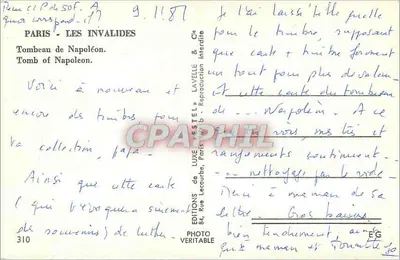 9.11.81
PARIS - LES INVALIDES
Tombeau de Napoléon.
Tomb of Napoleon.
Voici à nouveau et
encore des timbres pour
ta collection, papa.
Ainsi que cette carte
( qui t'évoquera sûrement
de souvenirs) de
310
PHOTO
VERITABLE
EDITIONS DE LUXE "ESTEL" LAVELLE & Cie
84, Rue Lecourbe, Paris Reproduction Interdite
CPAPHIL
Je l'ai laissé telle quelle
pour le timbre, supposant
que carte + timbre forment
un tout pour plus de valeur
et cette carte du tombeau
de ... Napoléon. A ce
vous, mes tris et
rangements continuent
.... nettoyage par le vide
Merci à maman de sa
lettre. Gros baisers,
bien tendrement, ainsi
qu'à maman et
EG